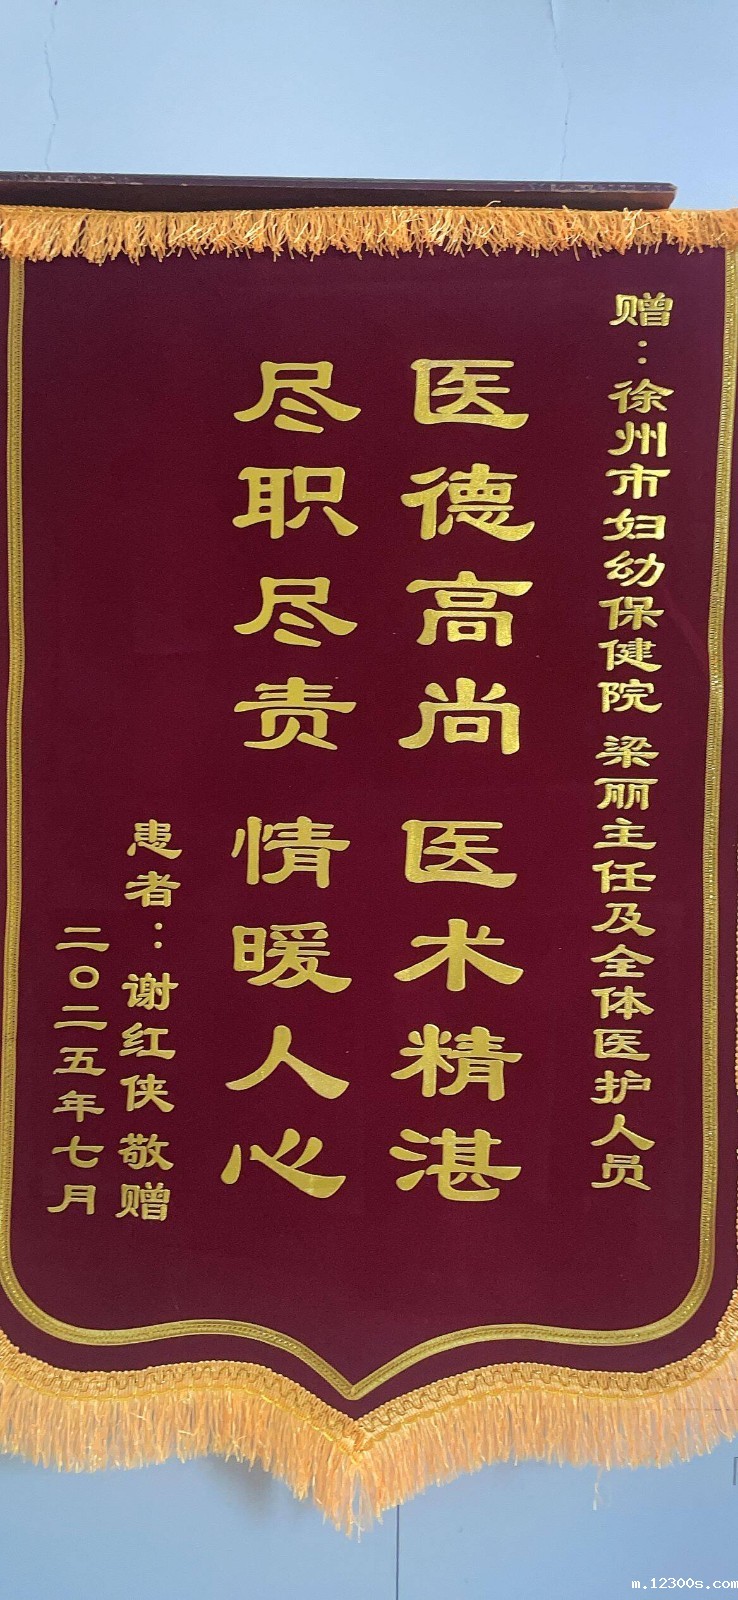 赠：徐州市妇幼保健院 梁丽主任及全体医护人员
医德高尚 医术精湛
尽职尽责 情暖人心
患者：谢红侠敬赠
二〇二五年七月
m.12300s.com